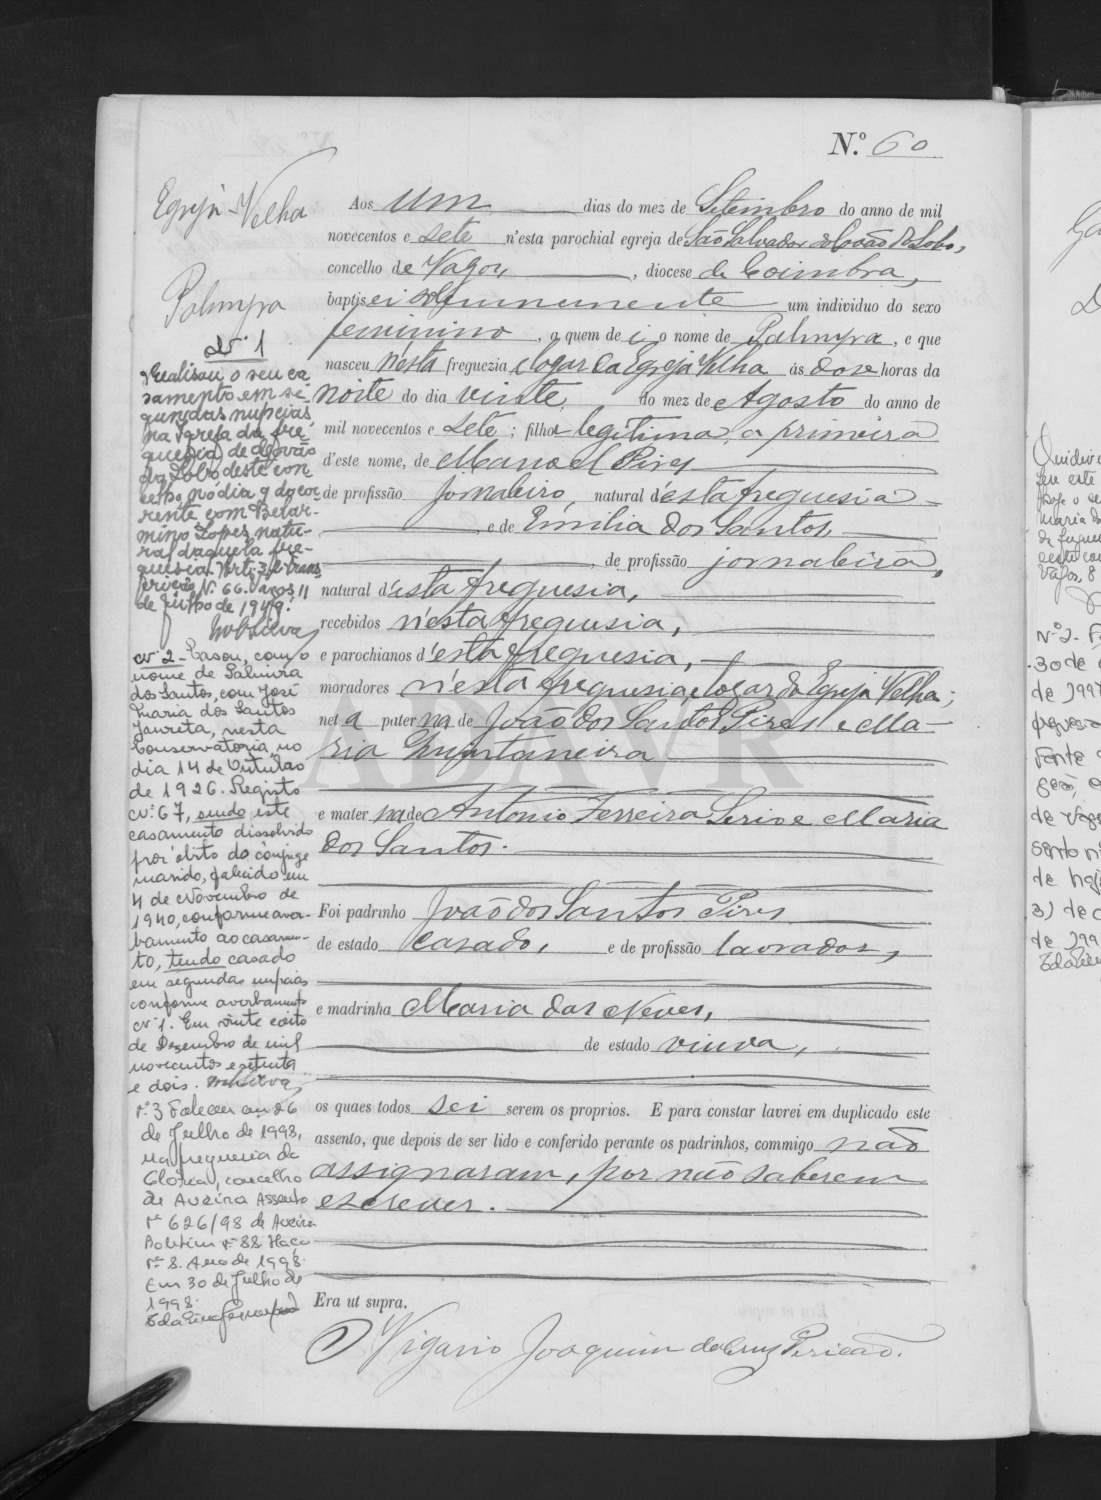 N.º 60
Egreja-Velha
Palmyra
Aos um dias do mez de Setembro do anno de mil
novecentos e sete n'esta parochial egreja de São Salvador do Covão do Lobo,
concelho de Vagos, diocese de Coimbra,
baptisei solemnemente um individuo do sexo
feminino, a quem dei o nome de Palmyra, e que
nasceu n'esta freguezia e logar da Egreja Velha ás doze horas da
noite do dia vinte do mez de Agosto do anno de
mil novecentos e sete; filha legitima, a primeira
d'este nome, de Manoel Pires
de profissão jornaleiro, natural d'esta freguesia
e de Emilia dos Santos
de profissão jornaleira,
natural d'esta freguesia,
recebidos n'esta freguesia,
e parochianos d'esta freguesia,
moradores n'esta freguesia e logar da Egreja Velha;
neta paterna de João dos Santos Pires e Ma-
ria
e materna de Antonio Ferreira Serio e Maria
dos Santos.
Foi padrinho João dos Santos Pires
de estado casado, e de profissão lavrador,
e madrinha Maria das Neves,
de estado viuva,
os quaes todos sei serem os proprios. E para constar lavrei em duplicado este
assento, que depois de ser lido e conferido perante os padrinhos, commigo não
assignaram, por não saberem
escrever.
Era ut supra.
O Vigario Joaquim da Cruz
Nº 1
Realisou o seu ca
samento em se
gundas nupcias
na Igreja da fre
guesia de Covão
do Lobo deste con
celho, no dia 9 do cor
rente com Belar-
mino Lopes natu-
ral daquela fre-
guesia.
N. 66. Vagos 11
de Julho de 1949.
Nº 2 - Casou, com o
nome de Palmira
dos Santos, com José
Maria dos Santos
nesta
Conservatoria, no
dia 14 de Outubro
de 1926. Registo
Nº 67, sendo este
casamento dissolvido
por óbito do conjuge
marido, falecido em
4 de Novembro de
1940, conforme aver-
bamento ao casamen-
to, tendo casado
em segundas nupcias
conforme averbamento
Nº 1. Em vinte e oito
de Dezembro de mil
novecentos e setenta
e dois.
Nº 3 Faleceu em 26
de Julho de 1998,
na freguesia da
Glória, concelho
de Aveiro Assento
nº 626/98 de Aveiro
Boletim nº 88 Maço
nº 8. Ano de 1998.
Em 30 de Julho de
1998.
ADAVR
Nº 2-
30 de
de 199
Fonte
de Vagos